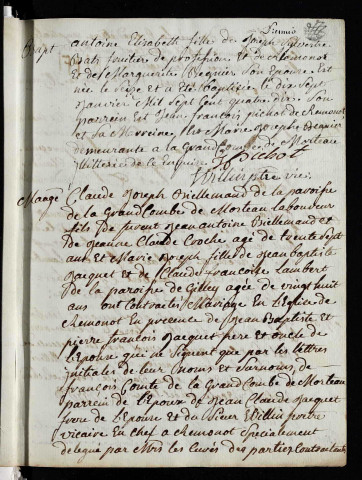 Bapt antoine Elisabeth fille de Joseph
Bati fruitier de profession et de Remonot
et de Marguerite Regnier Son Epouse Est
née le Seize et a Eté baptisée le dix Sept
Janvier Mil Sept Cent quatre dix Son
parrein Est Jean francois pichot de Remonot
et Sa Marreine Marie Joseph Regnier
demeurante a la Grand Combe de Morteau
illiterée de ce Enquise
J f Pichot
Willin ptre vic
Mariage Claude Joseph Briellemand de la paroisse
de la Grand Combe de Morteau laboureur
fils de feu Jean antoine Briellemand et
de Jeanne Claude Croche agé de trente Sept
ans et Marie Joseph fille de Jean baptiste
Jacquet et de Claude francoise Lambert
de la paroisse de Gilley agée de vingt huit
ans ont Contractés Mariage En l'Eglise de
Remonot En presence de Jean Baptiste et
pierre francois Jacquet pere et oncle de
l'Epouse qui ne Signent que par les lettres
initiales de leur Noms et Surnoms, de
francois Comte de la Grand Combe de Morteau
parrein de l'Epoux de Jean Claude Jacquet
frere de l'Epouse et du Sieur Willin pretre
vicaire En Chef a Remonot Specialement
delegué par Mrs les Curés des parties Contractantes